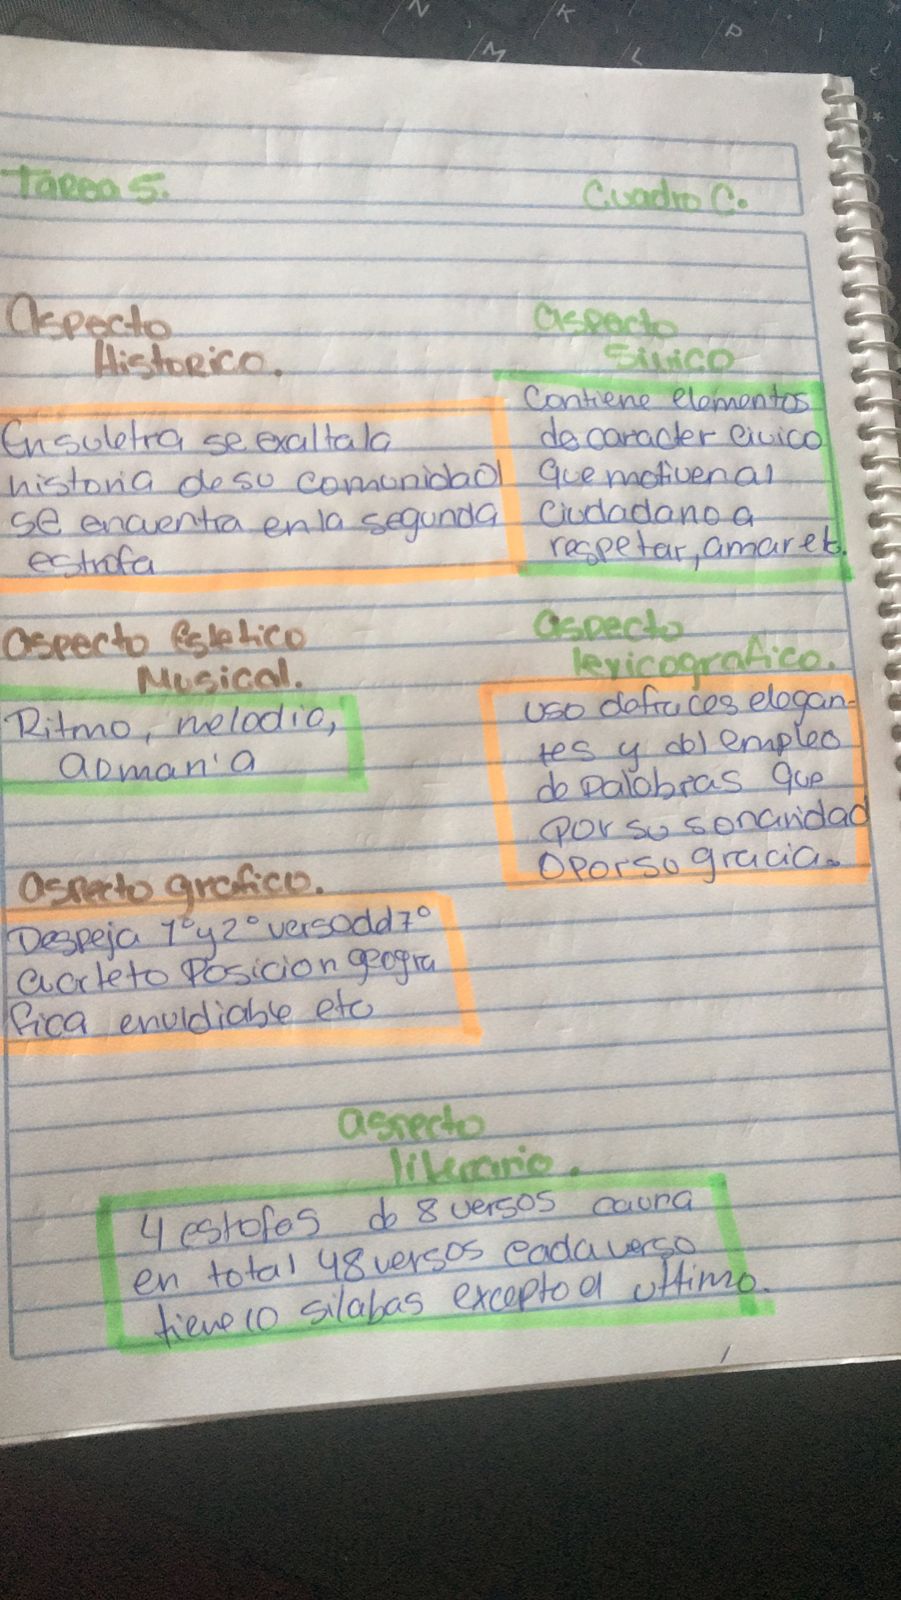 Tarea 5.
Cuadro C.
Aspecto
Historico.
En su letra se exalta la
historia de su comunidad
se encuentra en la segunda
estrofa
aspecto
Sivico
Contiene elementos
de caracter civico
que motiven al
ciudadano a
respetar, amar et.
Aspecto Estetico
Musical.
Ritmo, melodia,
aomania
aspecto
lexicografico.
uso de fraces elegan-
tes y del empleo
de palabras que
por su sonaridad
o por su gracia.
Aspecto grafico.
Despeja 1° y 2° verso del 7°
cuarteto Posicion geogra
fica envidiable etc
aspecto
literario.
4 estofos de 8 versos cauna
en total 48 versos cada verso
tiene 10 silabas excepto el ultimo.
N
K
M
L
P